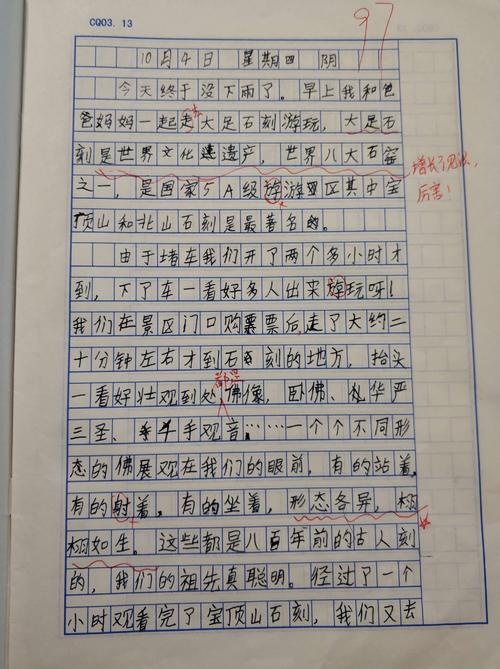 CQ03.13
97
10月4日 星期四 阴
今天终于没下雨了。早上我和爸
爸妈妈一起走去大足石刻游玩，大足石
刻是世界文化遗遗产，世界八大石窟
之一，是国家5A级旅游区其中宝
增长了见识，
厉害！
顶山和北山石刻是最著名的。
由于堵车我们开了两个多小时才
到，下了车一看好多人出来旅玩呀！
我们在景区门口购票后，走了大约二
十分钟左右才到石刻的地方，抬头
都是
一看好壮观到处佛像，卧佛、华严
三圣、千手观音……一个个不同形
态的佛展观在我们的眼前，有的站着
有的射着，有的坐着，形态各异，栩
栩如生。这些都是八百年前的古人刻
的，我们的祖先真聪明。经过了一个
小时观看完了宝顶山石刻，我们又去